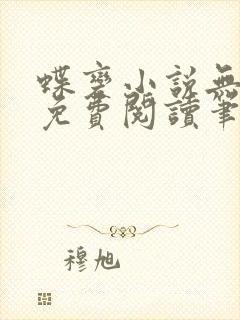 蝶變小說無
免費閱讀筆
穆旭